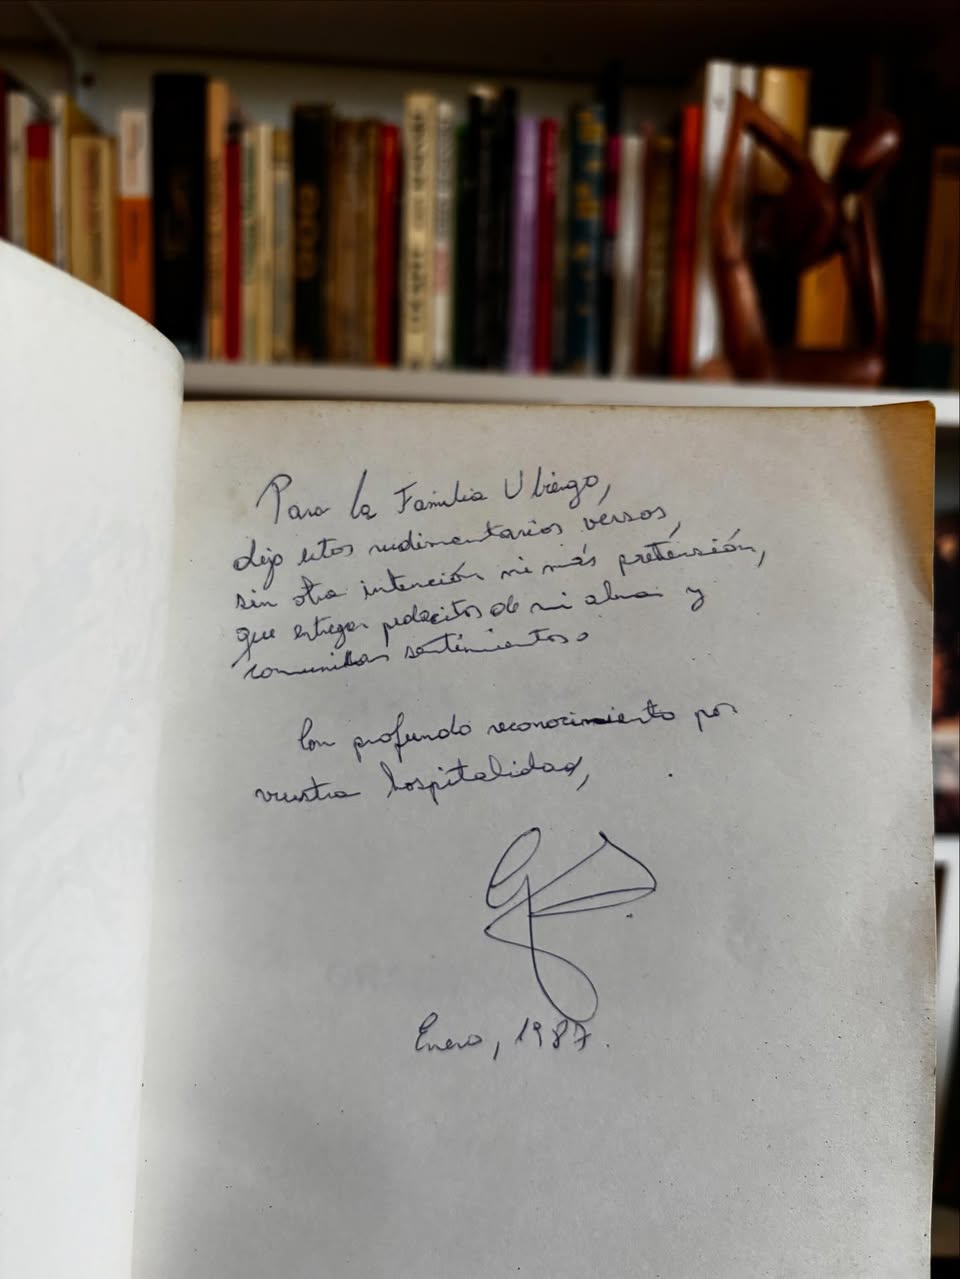 Para la Familia Ubiergo,
dejo estos rudimentarios versos,
sin otra intención ni más pretensión,
que entregar pedacitos de mi alma y
comunicar sentimientos.
Con profundo reconocimiento por
vuestra hospitalidad,
Enero, 1987.